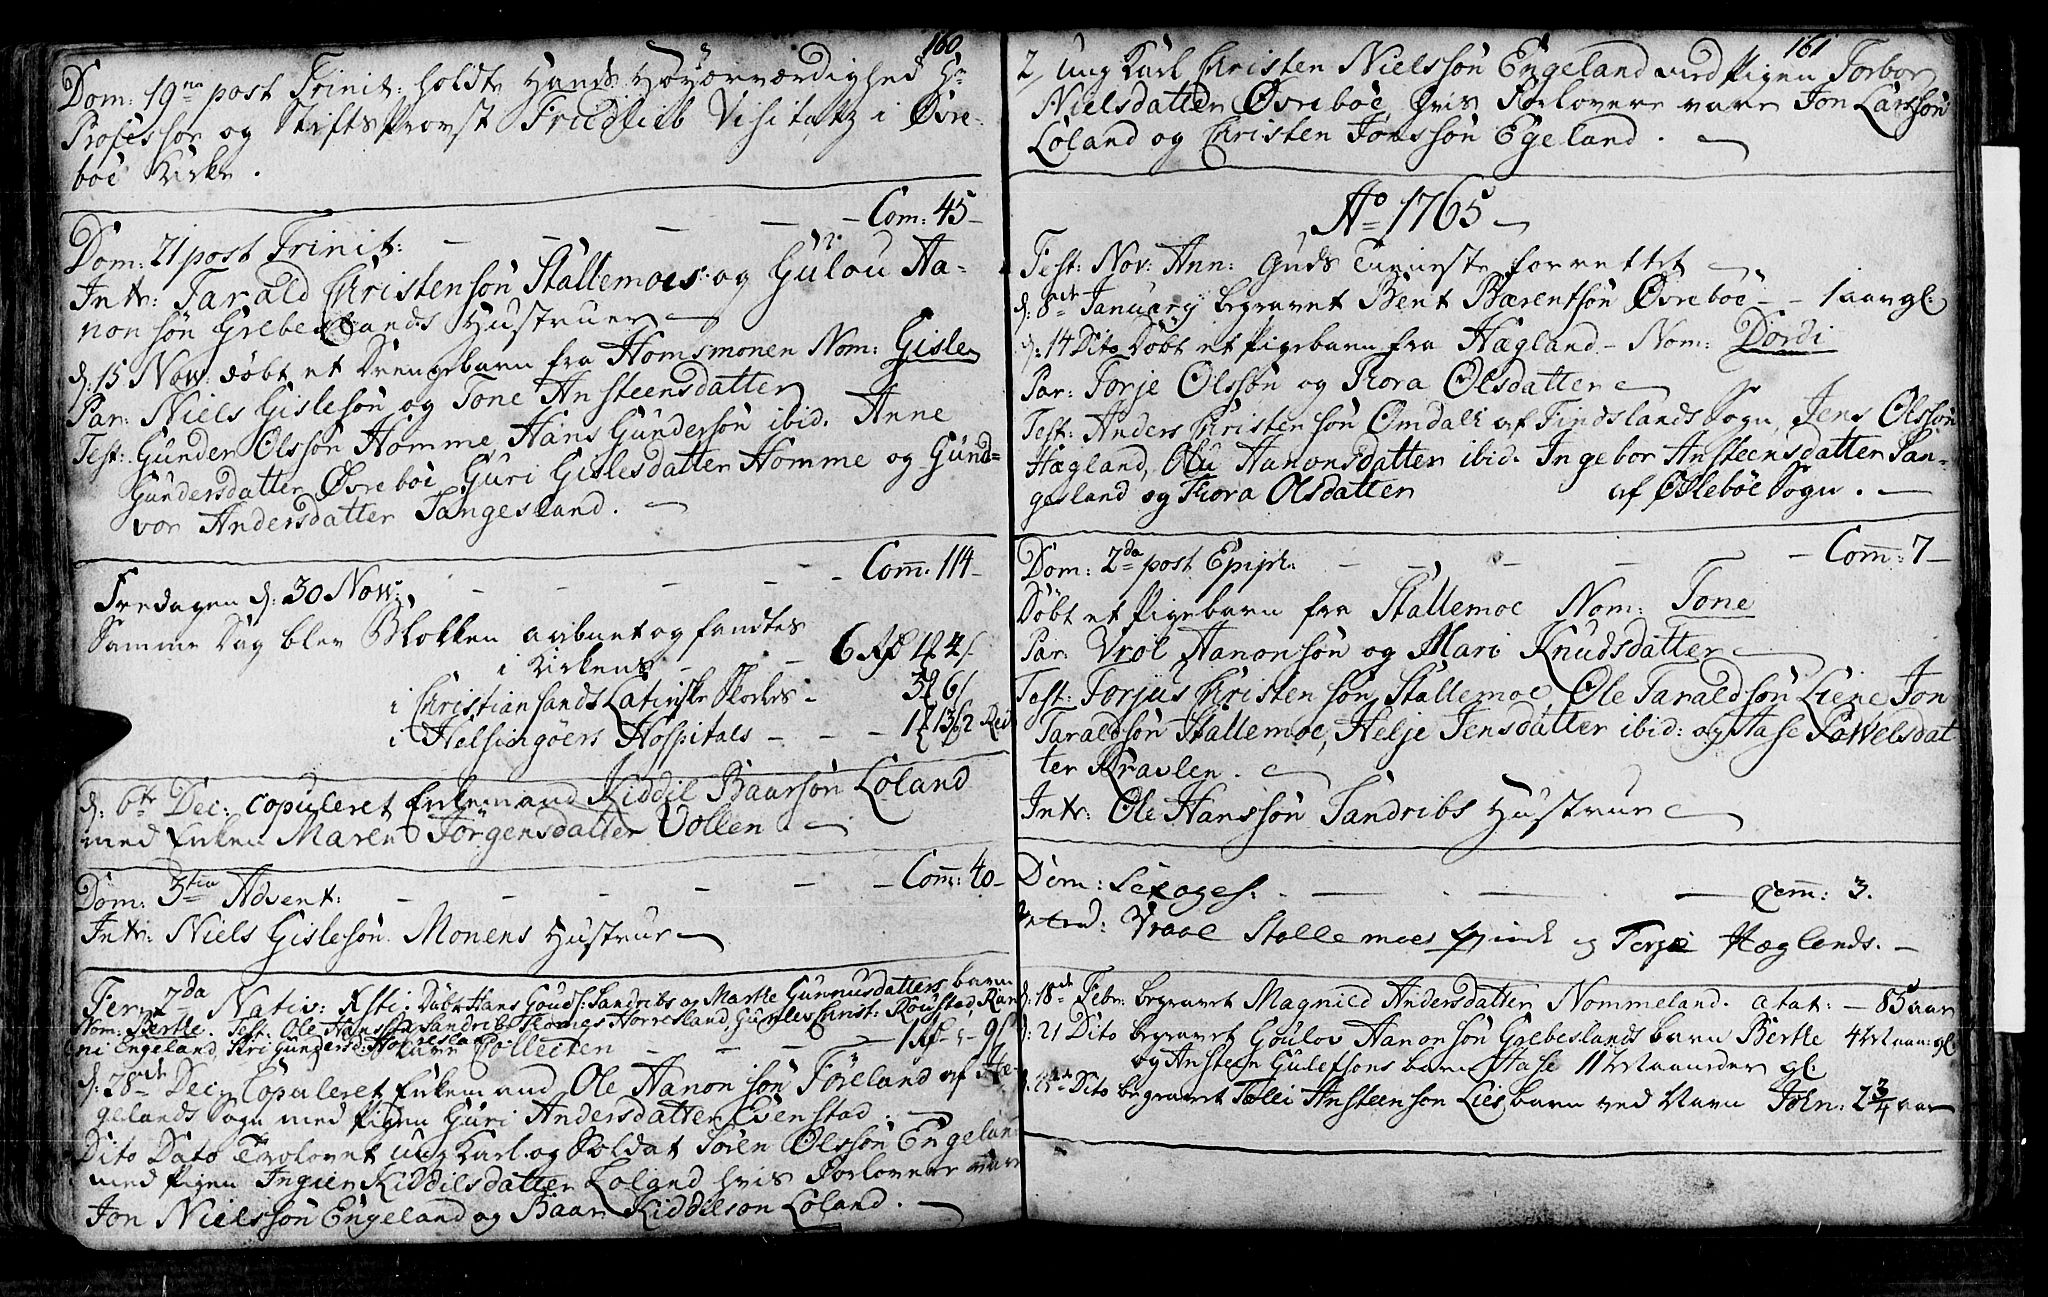 160
Dom: 19na post Trinit: holdte Hands Høyærværdighed Hr
Professor og StiftsProvst Friedlieb Visitatz i Øvre-
boe Kirke.
Dom: 21 post Trinit: — — — — Com: 45 —
Intr: Tarald Christensøn Stallemoes og Gulou Aa-
nonsøn Grebeslands Hustruer
d: 15 Nov: døbt et Drengebarn fra Homsmonen Nom: Gisle
Par: Niels Gislesøn og Tone Ansteensdatter
Test: Gunder Olssøn Homme, Hans Gundersøn ibid. Anne
Gundersdatter Øvreboe, Guri Gislesdatter Homme og Gund-
vor Andersdatter Tangesland.
Fredagen d: 30 Nov: — — — — Com̄. 114 —
Samme Dag blev Blokken aabnet og fandtes
i Kirkens — — 6 Rd
i Christiansands Latinske Skoeles —
i Helsingøers Hospitals — — —
d: 6te Dec: copuleret Enkemand Kiddil Baarsøn Loland
med Enken Maren Jørgensdatter Vollen.
Dom: 3tia Advent: — — — — Com̄: 40 —
Intr: Niels Gislesøn Monens Hustrue
Fer: 2da Nativ: Xsti. Døbt Hans Goudes: Sandribs og Marthe Gunnusdatters barn
Nom: Berthe. Test: Ole Hanssøn Sandrib, Thomes Horresland,
ni Engeland, Siri Gundersd: Horresland
Collecten — — — 1 Rd
d: 28de Dec: Copuleret Enkemand Ole Aanonsøn Føreland af He-
gelands Sogn med Pigen Guri Andersdatter Evenstad.
Dito Dato Trolovet ung Karl og Soldat Søren Olssøn Engeland
med Pigen Ingier Kiddilsdatter Loland hvis Forlovere vare
Jon Nielssøn Engeland og Baar Kiddelsøn Loland.
161
2, Ung Karl Christen Nielssøn Engeland med Pigen Torbor
Nielsdatter Øvreboe, hvis Forlovere vare Jon Larssøn
Loland og Christen Jonssøn Egeland.
Ao 1765
Fest: Nov: Ann: Guds Tieneste forrettet
d: 8de January begravet Bent Bærentsøn Øvreboe — — 1 aar gl:
d: 14 Dito Døbt et Pigebarn fra Hægland — Nom: Dordi
Par: Torje Olssøn og Thora Olsdatter
Test: Anders Christensøn Omdall af Findslands Sogn, Jens Olssøn
Hægland, Olu Aanonsdatter ibid. Ingebor Ansteensdatter Tan-
gesland og Thora Olsdatter af Øslebøe Sogn.
Dom: 2da post Epiph: — — — — — Com̄: 7 —
Døbt et Pigebarn fra Stallemoe Nom: Tone
Par: Vrol Aanonsøn og Mari Knudsdatter
Test: Torjus Christensøn Stallemoe, Ole Taraldsøn Liene, Jon
Taraldsøn Stallemoe, Helje Jensdatter ibid: og Aase Pawelsdat
ter Kravlen.
Intr: Ole Hanssøn Sandribs Hustrue
Dom: Sexages: — — — Com̄: 3.
Introd: Vraal Stallemoes qvinde og Terje Hæglands. —
d: 18de Febr: begravet Magnild Andersdatter Nommeland. ætat: — 85 aar
d: 21 Dito begravet Goulov Aanonsøn Grebeslands barn Berthe
og Ansteen Gulefsons barn Aase gl:
Dito begravet Tolli Ansteenson Lies barn ved Navn John: 2 3/4 aar